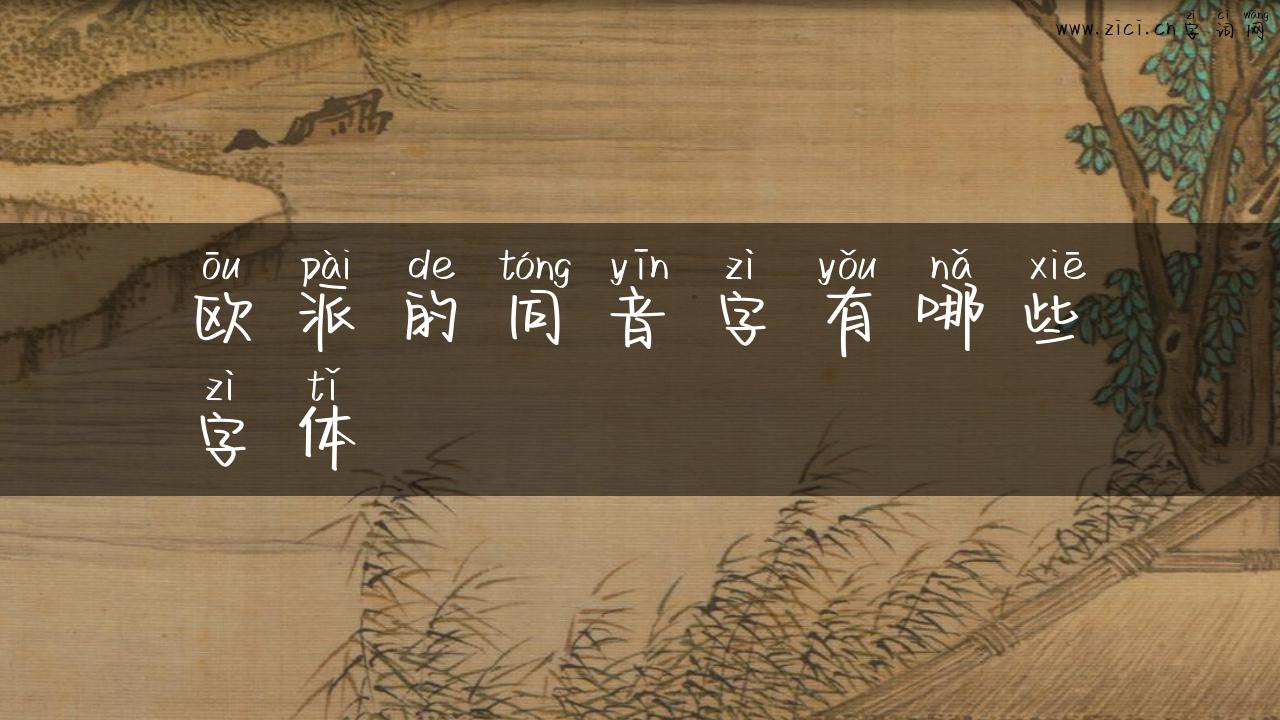 zì cí wǎng
www.zici.cn字词网
ōu pài de tóng yīn zì yǒu nǎ xiē
欧派的同音字有哪些
zì tǐ
字体